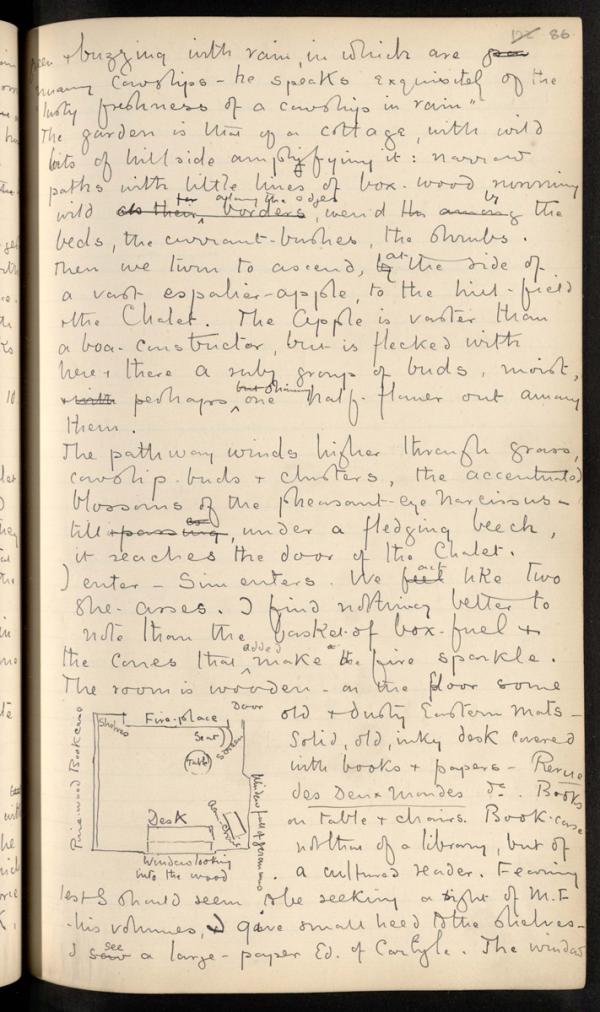 122 86
green + buzzing with rain, in which are
many cowslips - he speaks exquisitely of the
"lusty freshness of a cowslip in rain"
The garden is that of a cottage, with wild
bits of hillside amplifying it: narrow
paths with little lines of box-wood, running
far along the edges
wild as their borders, wend by among the
beds, the currant-bushes, the shrubs.
Then we turn to ascend, by at the side of
a vast espalier-apple, to the hill-field
+ the Chalet. The Apple is vaster than
a boa-constructor, but is flecked with
here + there a ruby group of buds, moist,
but shining
+ with perhaps one half-flower out among
them.
The pathway winds higher through grass,
cowslip-buds + clusters, the accentuated
blossoms of the pheasant-eye Narcissus -
till passing, under a fledging beech,
it reaches the door of the Chalet.
I enter - Sim enters. We feel act like two
she-asses. I find nothing better to
note than the basket of box-fuel +
the cones that added make the fire sparkle.
The room is wooden - on the floor some
old + dusty Eastern mats -
Solid, old, inky desk covered
with books + papers - Revue
des Deux Mondes &c. Books
on table + chairs. Book-case
not that of a library, but of
a cultured reader. Fearing
lest I should seem to be seeking a sight of M.F
- his volumes, I give small heed to the shelves -
I saw see a large-paper Ed. of Carlyle. The window
Door
Shelves
Fire-place
Seat
Screen
Table
Pine-wood Bookcase
Window full of geraniums
Desk
Windows looking
into the wood